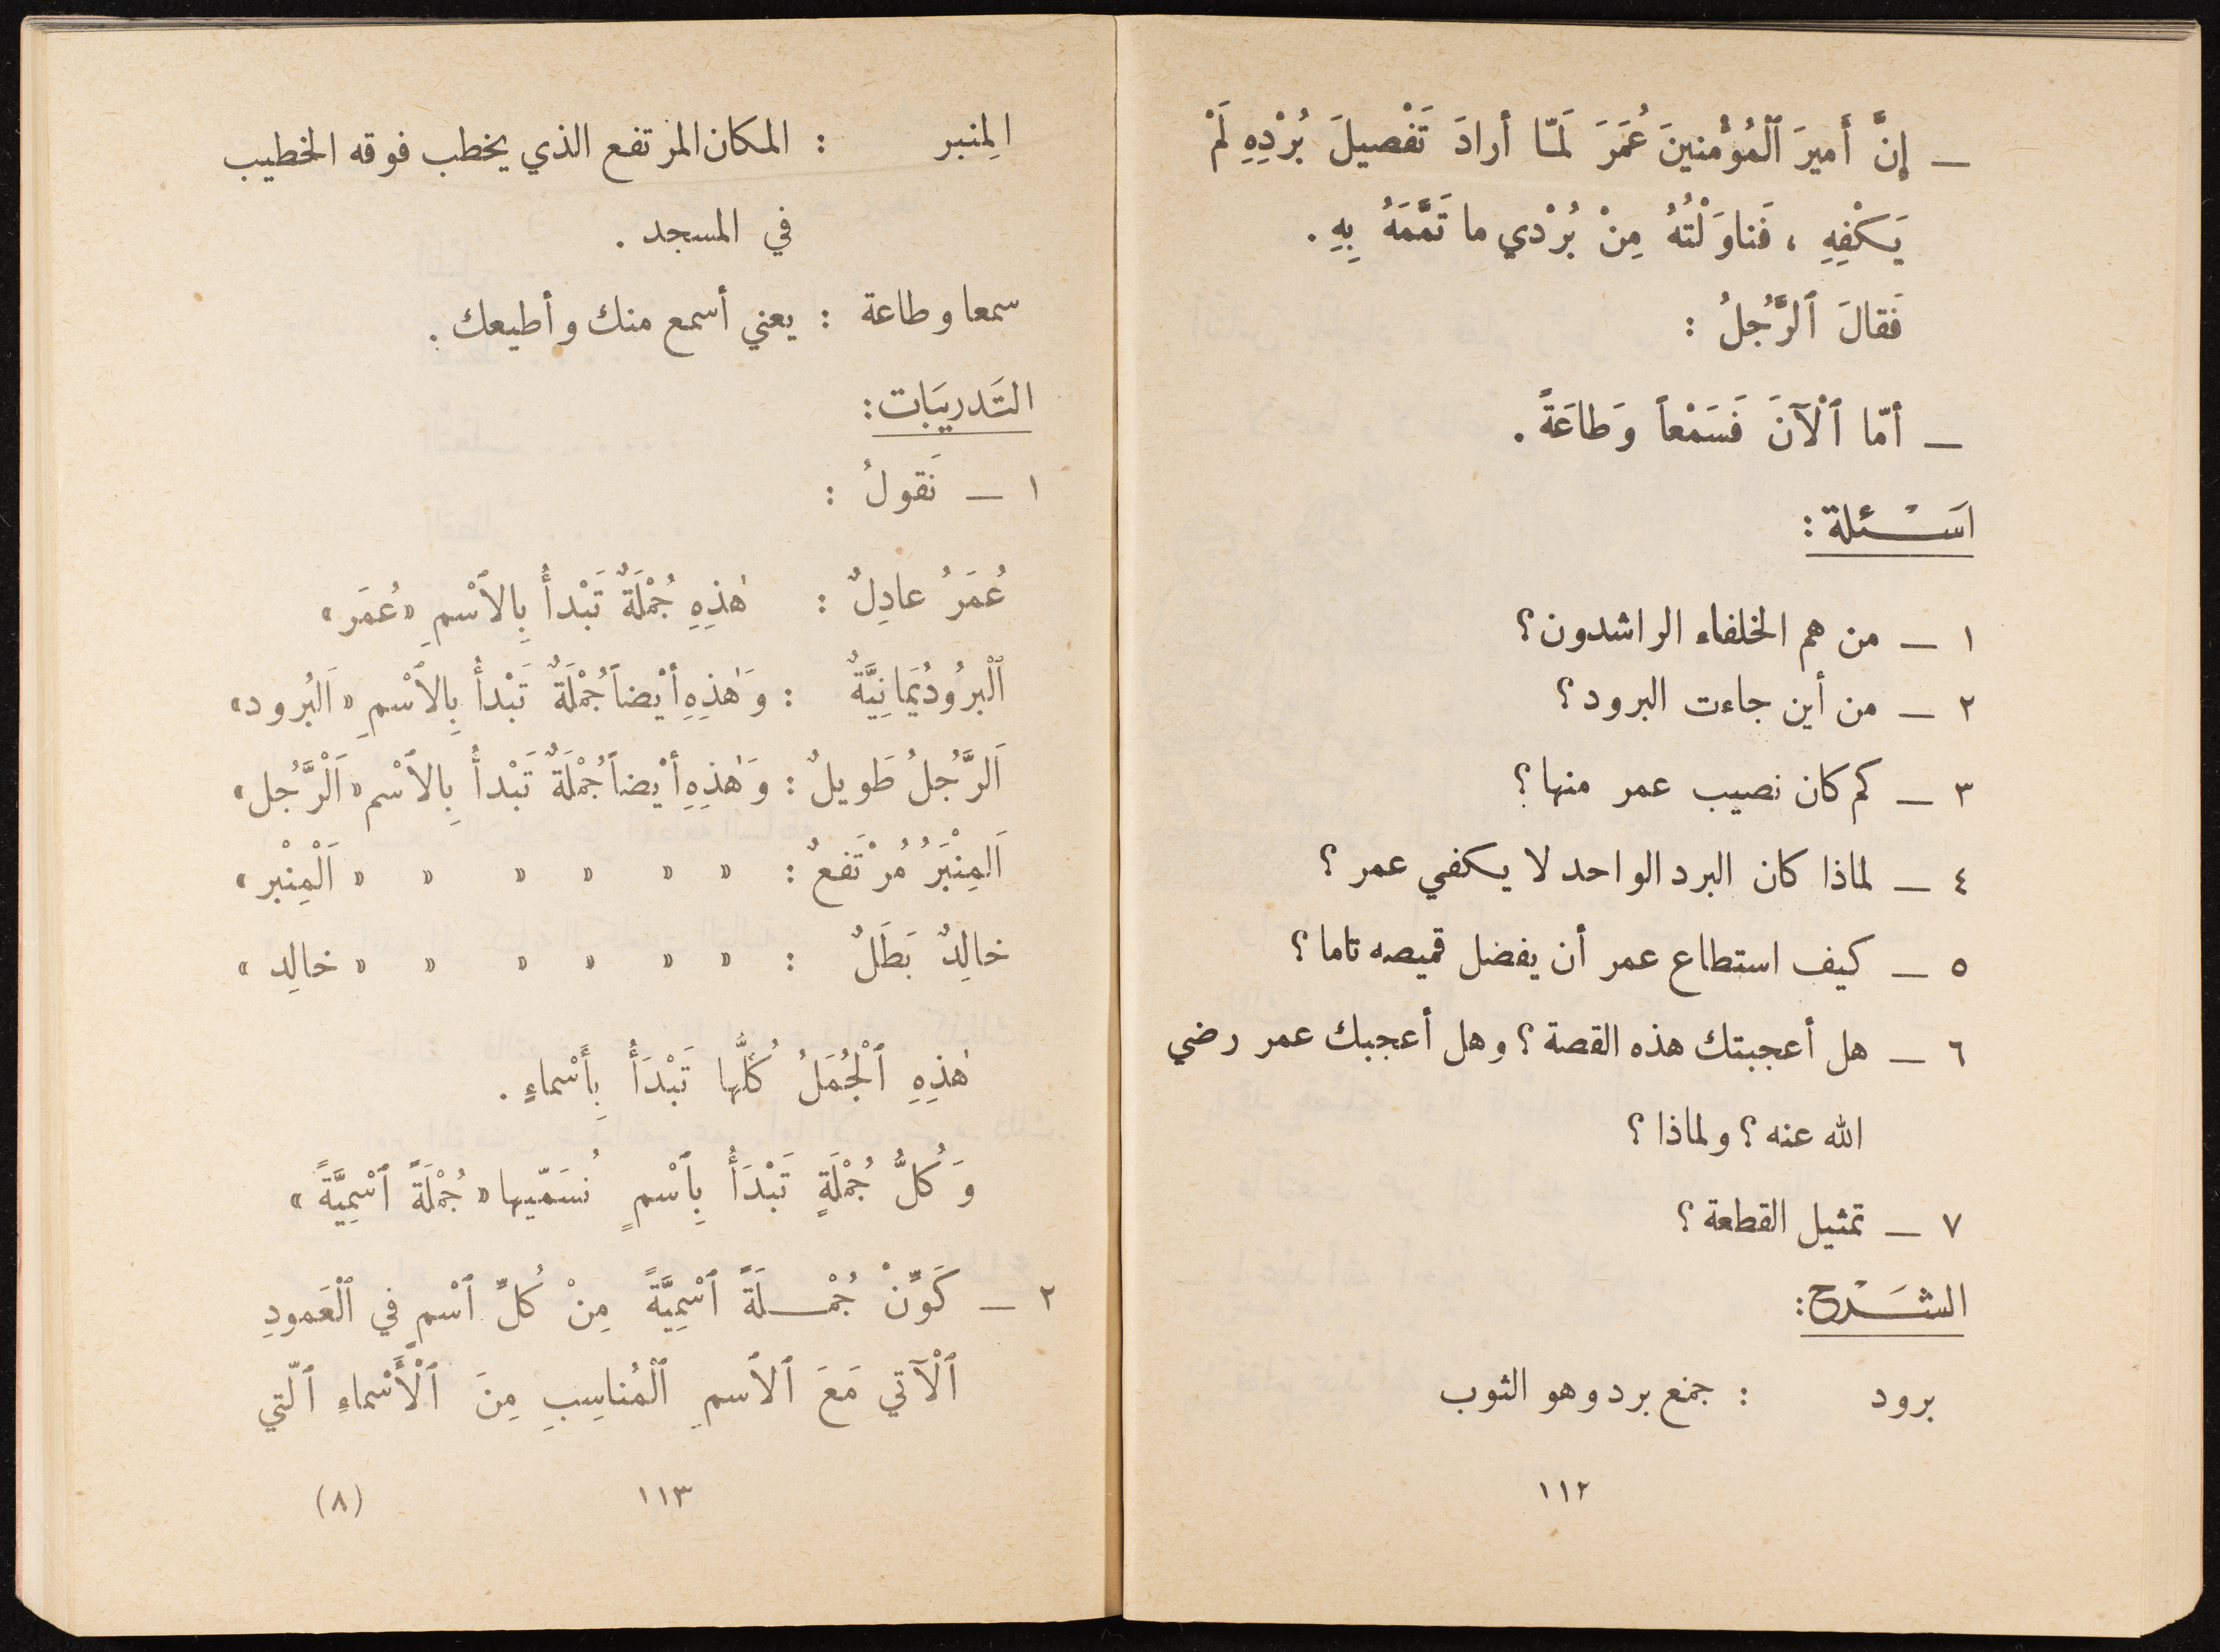 ـ إِنَّ أَميرَ ٱلْمُؤْمنينَ عُمَرَ لَمّا أرادَ تَفْصيلَ بُرْدِهِ لَمْ
يَكْفِهِ ، فَناوَلْتُهُ مِنْ بُرْدي ما تَمَّمَهُ بِهِ .
فَقالَ ٱلرَّجُلُ :
ـ أمّا ٱلْآنَ فَسَمْعاً وَطاعَةً .
اسَـْـئلة :
١ ـ من هم الخلفاء الراشدون ؟
٢ ـ من أين جاءت البرود ؟
٣ ـ كم كان نصيب عمر منها ؟
٤ ـ لماذا كان البرد الواحد لا يكفي عمر ؟
٥ ـ كيف استطاع عمر أن يفضل قميصه تاما ؟
٦ ـ هل أعجبتك هذه القصة ؟ وهل أعجبك عمر رضي
الله عنه ؟ ولماذا ؟
٧ ـ تمثيل القطعة ؟
الشَـْرح :
برود : جمع برد وهو الثوب
١١٢
المِنبر : المكان المرتفع الذي يخطب فوقه الخطيب
في المسجد .
سمعا وطاعة : يعني أسمع منك وأطيعك .
التَدريبَات :
١ ـ نَقولُ :
عُمَرُ عادِلٌ : هٰذِهِ جُمْلَةٌ تَبْدأُ بِالاَسْمِ «عُمَر»
ٱلْبرُودُيَمانِيَّةٌ : وَهٰذِهِ أيْضاً جُمْلَةٌ تَبْدأُ بِالاَسْمِ «اَلبُرود»
اَلرَّجُلُ طَويلٌ : وَهٰذِهِ أيْضاً جُمْلَةٌ تَبْدأُ بِالاَسْم «اَلْرَّجُل»
اَلمِنْبَرُ مُرْتَفعٌ : » » » » » « اَلْمِنْبر »
خالِدٌ بَطَلٌ : » » » » » « خالِد »
هٰذِهِ ٱلْجُمَلُ كُلُّها تَبْدَأُ بِأَسْماءٍ .
وَكُلُّ جُمْلَةٍ تَبْدَأُ بِٱسْمٍ نُسَمّيها « جُمْلَةً ٱسْمِيَّةً »
٢ ـ كَوِّنْ جُمْـلَةً ٱسْمِيَّةً مِنْ كُلِّ ٱسْمٍ في ٱلْعَمودِ
ٱلْآتي مَعَ ٱلاَسمِ ٱلْمُناسِبِ مِنَ ٱلْأَسْماءِ ٱلّتي
١١٣ (٨)